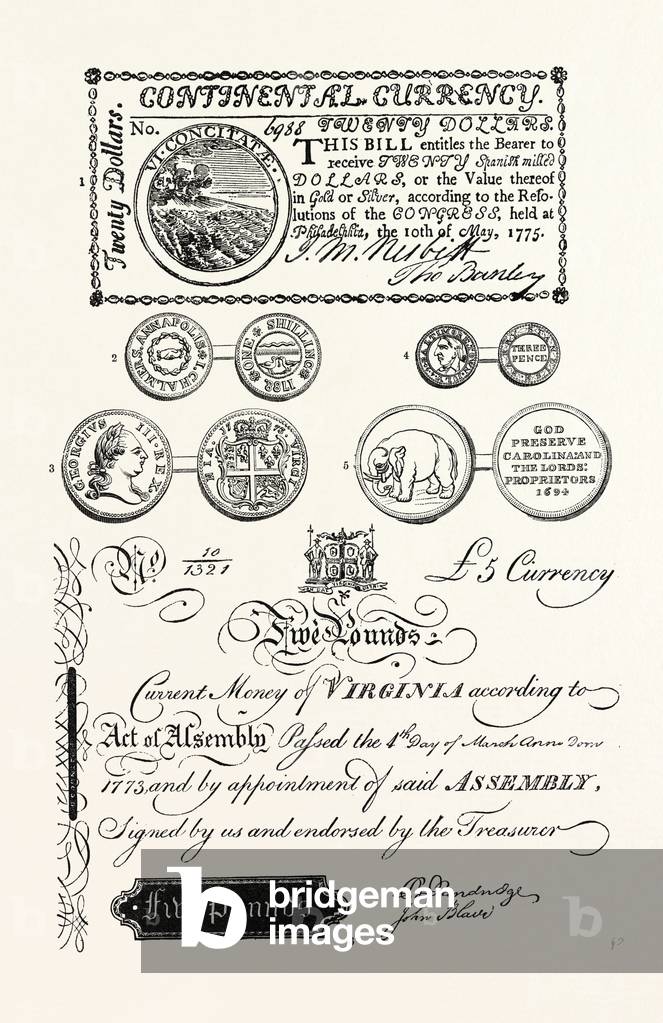 CONTINENTAL CURRENCY.
Twenty Dollars.
1
No. 6988 TWENTY DOLLARS.
VI CONCITATÆ.
THIS BILL entitles the Bearer to
receive TWENTY Spanish milled
DOLLARS, or the Value thereof
in Gold or Silver, according to the Reſo-
lutions of the CONGRESS, held at
Philadelphia, the 10th of May, 1775.
J. M. Nesbitt
Tho Barclay
2
I. CHALMERS, ANNAPOLIS
ONE SHILLING 1783
4
THREE
PENCE
3
GEORGIVS III. REX
1773
VIRGI NIA
5
GOD
PRESERVE
CAROLINA: AND
THE LORDS:
PROPRIETORS
1694
No. 10
1321
£5 Currency
Five Pounds
Current Money of VIRGINIA according to
Act of Aſsembly Paſsed the 4th Day of March Anno Dom
1773, and by appointment of said ASSEMBLY,
Signed by us and endorsed by the Treasurer
John Blair
bridgeman
images
b